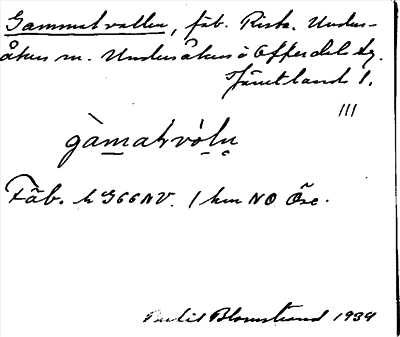 Gammalvallen, fäb. Rista. Unders-
åkers sn. Undersåkers o Offerdals tg.
Jämtlands l.
III
gàmaḷvóln̥
Fäb. h 366 NV. 1 km NO Öse.
Bertil Blomstrand 1934